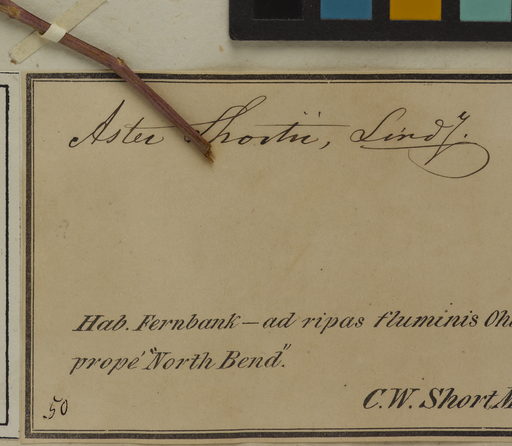 Aster Shortii, Lindy.
Hab. Fernbank — ad ripas fluminis Ohi
propé "North Bend".
50
C.W. Short M